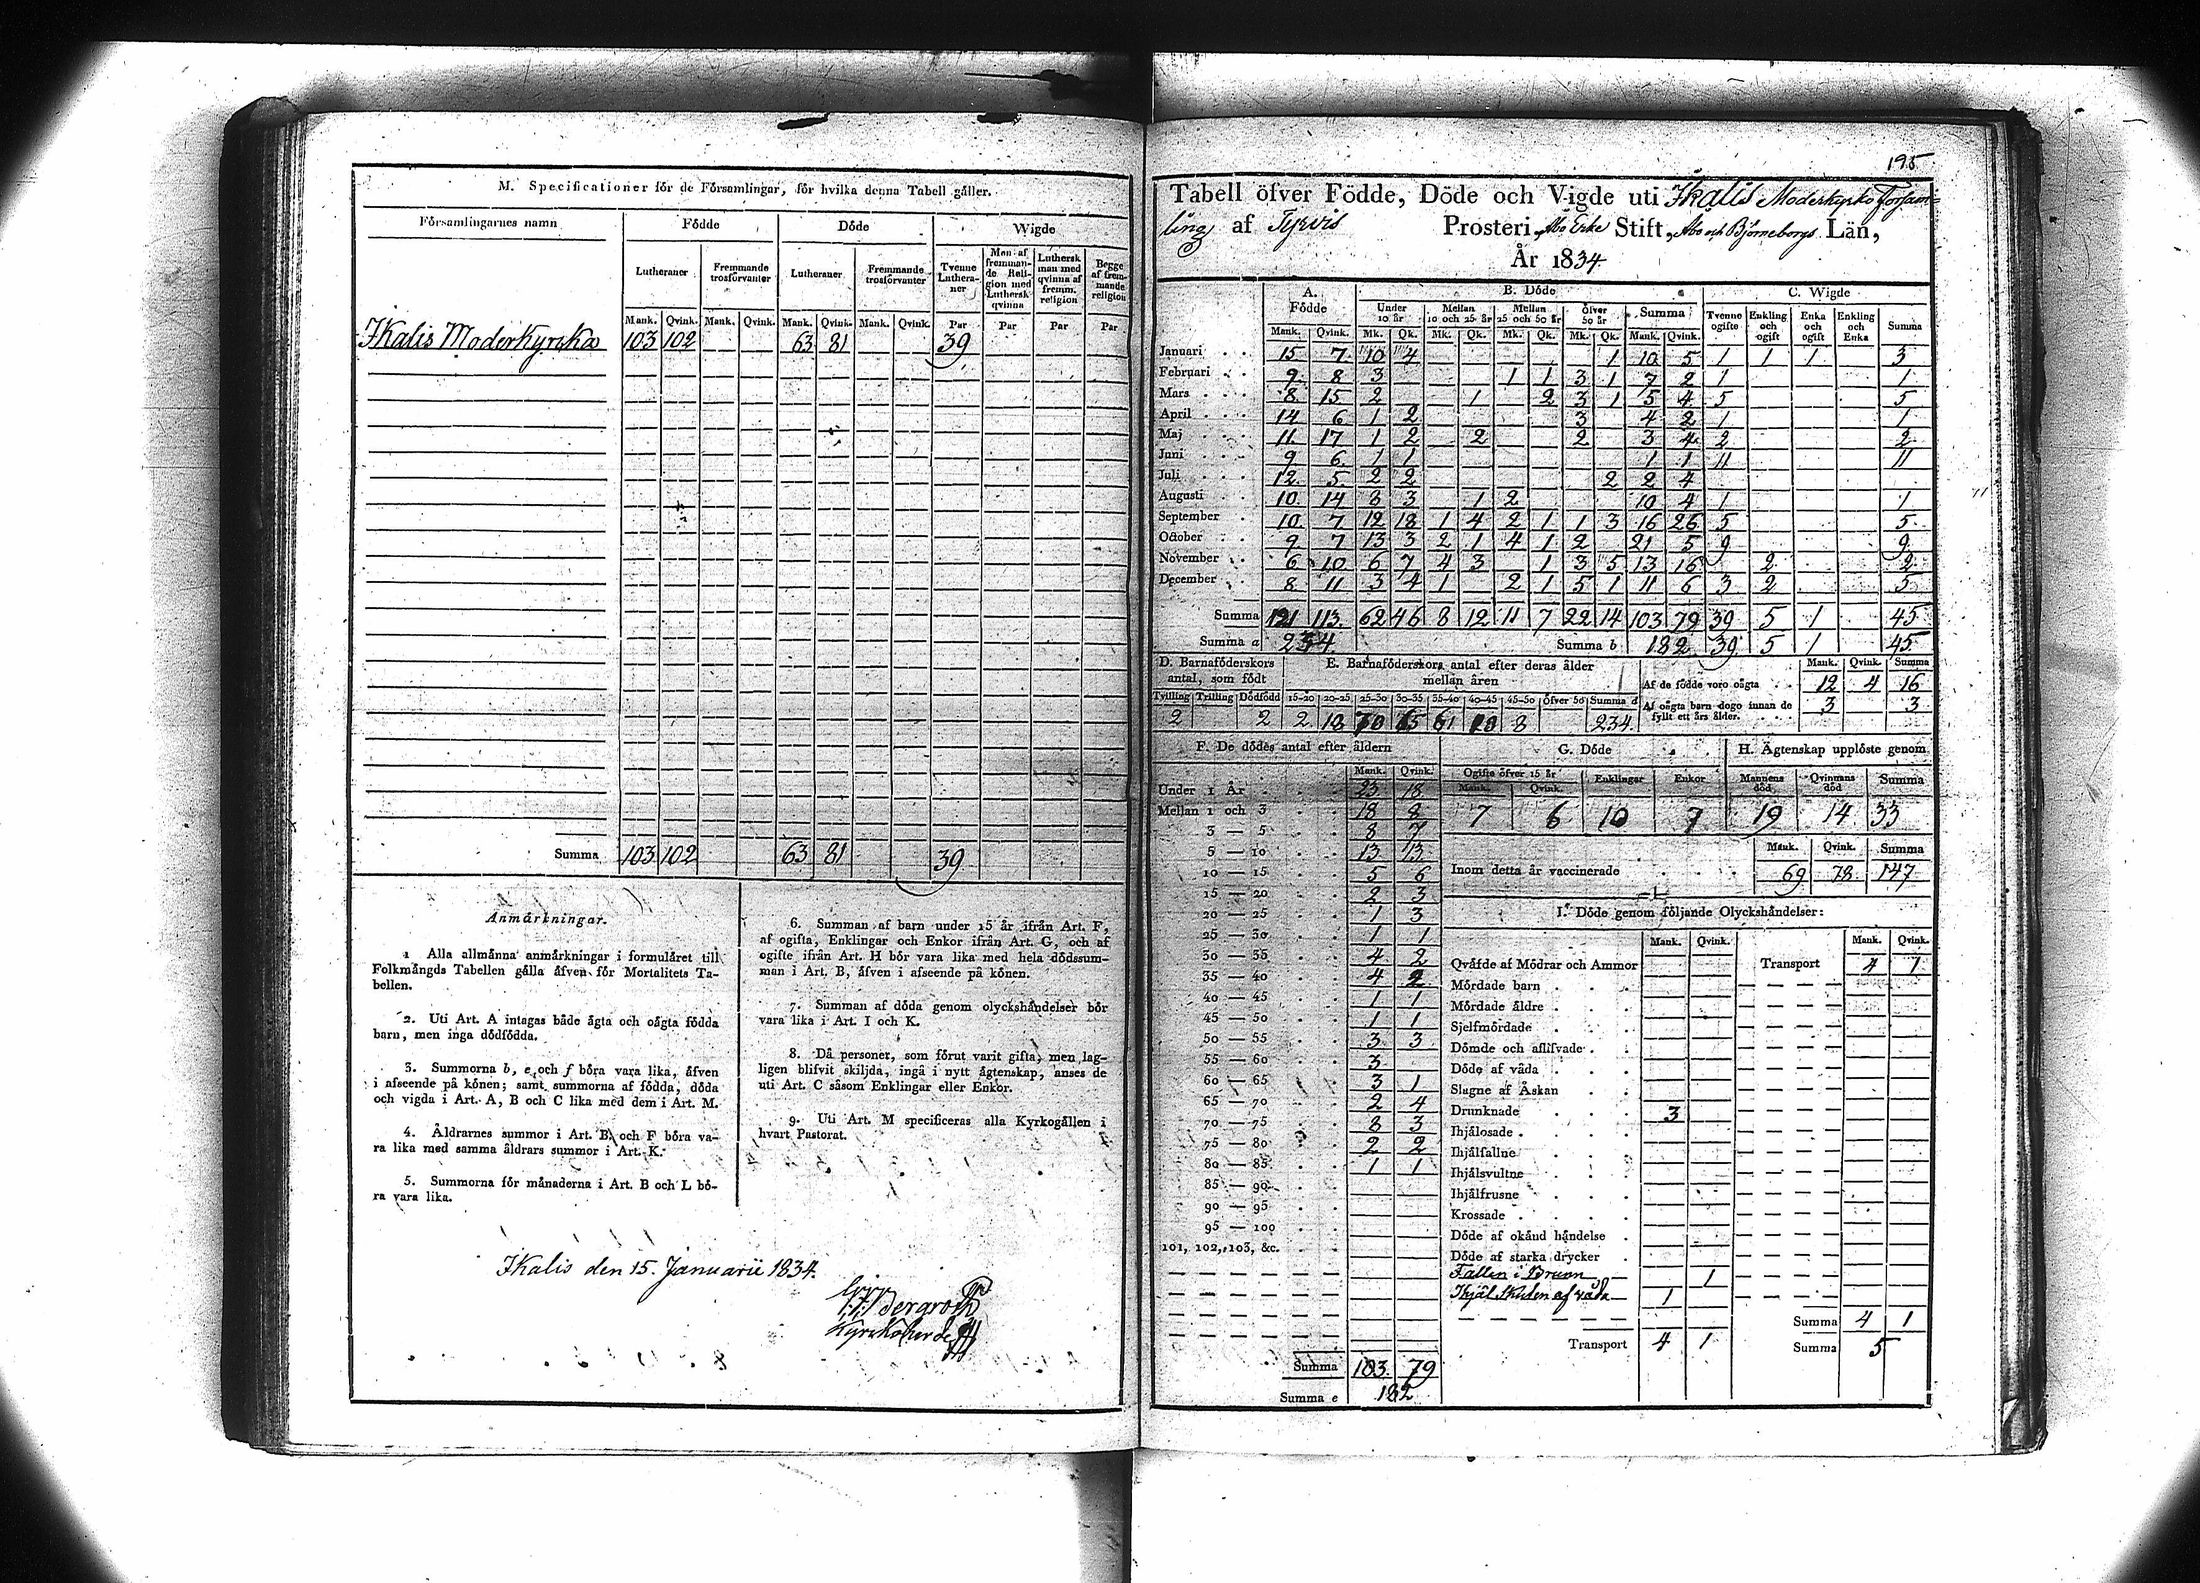 M. Specificationer för de Församlingar, för hvilka denna Tabell gäller.
Församlingarnes namn Födde Döde Wigde
Lutheraner Fremmande trosförvanter Lutheraner Fremmande trosförvanter Tvenne Lutheraner Men af fremmande Religion med Luthersk qvinna Luthersk man med qvinna af fremm. religion Begge af fremmande religion
Mank. Qvink. Mank. Qvink. Mank. Qvink. Mank. Qvink. Par Par Par Par
Ikalis Moderkyrka 103 102 63 81 39
Summa 103 102 63 81 39
Anmärkningar.
1 Alla allmänna anmärkningar i formuläret till
Folkmängds Tabellen gälla äfven för Mortalitets Ta-
bellen.
2. Uti Art. A intagas både ägta och oägta födda
barn, men inga dödfödda.
3. Summorna b, e och f böra vara lika, äfven
i afseende på könen; samt summorna af födda, döda
och vigda i Art. A, B och C lika med dem i Art. M.
4. Åldrarnes summor i Art. B och F böra va-
ra lika med samma åldrars summor i Art. K.
5. Summorna för månaderna i Art. B och L bö-
ra vara lika.
6. Summan af barn under 15 år ifrån Art. F,
af ogifta, Enklingar och Enkor ifrån Art. G, och af
gifte ifrån Art. H bör vara lika med hela dödssum-
man i Art. B, äfven i afseende på könen.
7. Summan af döda genom olyckshändelser bör
vara lika i Art. I och K.
8. Då personer, som förut varit gifta, men lag-
ligen blifvit skiljda, ingå i nytt ägtenskap, anses de
uti Art. C såsom Enklingar eller Enkor.
9. Uti Art. M specificeras alla Kyrkogällen i
hvart Pastorat.
Ikalis den 15. Januarii 1834.
Bergroth
Kyrkoherde
195
Tabell öfver Födde, Döde och Vigde uti Ikalis Moderkyrko Försam-
ling af Tyrvis Prosteri, Åbo Erke Stift, Åbo och Björneborgs Län,
År 1834
A. Födde B. Döde C. Wigde
Under 10 år Mellan 10 och 25 år Mellan 25 och 50 år Öfver 50 år Summa Tvenne ogifte Enkling och ogift Enka och ogift Enkling och Enka Summa
Mank. Qvink. Mk. Qk. Mk. Qk. Mk. Qk. Mk. Qk. Mank. Qvink.
Januari 15 7 10 4 1 10 5 1 1 1 3
Februari 9 8 3 1 1 3 1 7 2 1 1
Mars 8 15 2 1 2 3 1 5 4 5 5
April 14 6 1 2 3 4 2 1 1
Maj 11 17 1 2 2 2 3 4 2 2
Juni 9 6 1 1 1 1 11 11
Juli 12 5 2 2 2 2 4
Augusti 10 14 8 3 1 2 10 4 1 1
September 10 7 12 18 1 4 2 1 1 3 16 26 5 5
October 9 7 13 3 2 1 4 1 2 21 5 9 9
November 6 10 6 7 4 3 1 3 5 13 16 2 2
December 8 11 3 4 1 2 1 5 1 11 6 3 2 5
Summa 121 113 62 46 8 12 11 7 22 14 103 79 39 5 1 45
Summa a 234. Summa b 182 39 5 1 45
D. Barnaföderskors antal, som födt E. Barnaföderskors antal efter deras ålder mellan åren Mank. Qvink. Summa
Tvilling Trilling Dödfödd 15-20 20-25 25-30 30-35 35-40 40-45 45-50 Öfver 50 Summa d
2 2 2 18 8 234.
Af de födde voro oägta 12 4 16
Af oägta barn dogo innan de fyllt ett års ålder. 3 3
F. De dödes antal efter åldern
Mank. Qvink.
Under 1 År 23 18
Mellan 1 och 3 18 8
3 — 5 8 7
5 — 10 13 13
10 — 15 5 6
15 — 20 2 3
20 — 25 1 3
25 — 30 1 1
30 — 35 4 2
35 — 40 4 2
40 — 45 1 1
45 — 50 1 1
50 — 55 3 3
55 — 60 3
60 — 65 3 1
65 — 70 2 4
70 — 75 8 3
75 — 80 2 2
80 — 85 1 1
85 — 90
90 — 95
95 — 100
101, 102, 103, &c.
Summa 103 79
Summa e 182
G. Döde
Ogifte öfver 15 år Enklingar Enkor
Mank. Qvink.
7 6 10 7
H. Ägtenskap upplöste genom
Mannens död Qvinnans död Summa
19 14 33
Mank. Qvink. Summa
Inom detta år vaccinerade 69 78 147
I. Döde genom följande Olyckshändelser:
Mank. Qvink. Mank. Qvink.
Qväfde af Mödrar och Ammor Transport 4 1
Mördade barn
Mördade äldre
Sjelfmördade
Dömde och aflifvade
Döde af våda
Slagne af Åskan
Drunknade 3
Ihjälosade
Ihjälfallne
Ihjälsvultne
Ihjälfrusne
Krossade
Döde af okänd händelse
Döde af starka drycker
Fallen i Brunn 1
Ihjäl Skuten af våda 1
Summa 4 1
Transport 4 1 Summa 5